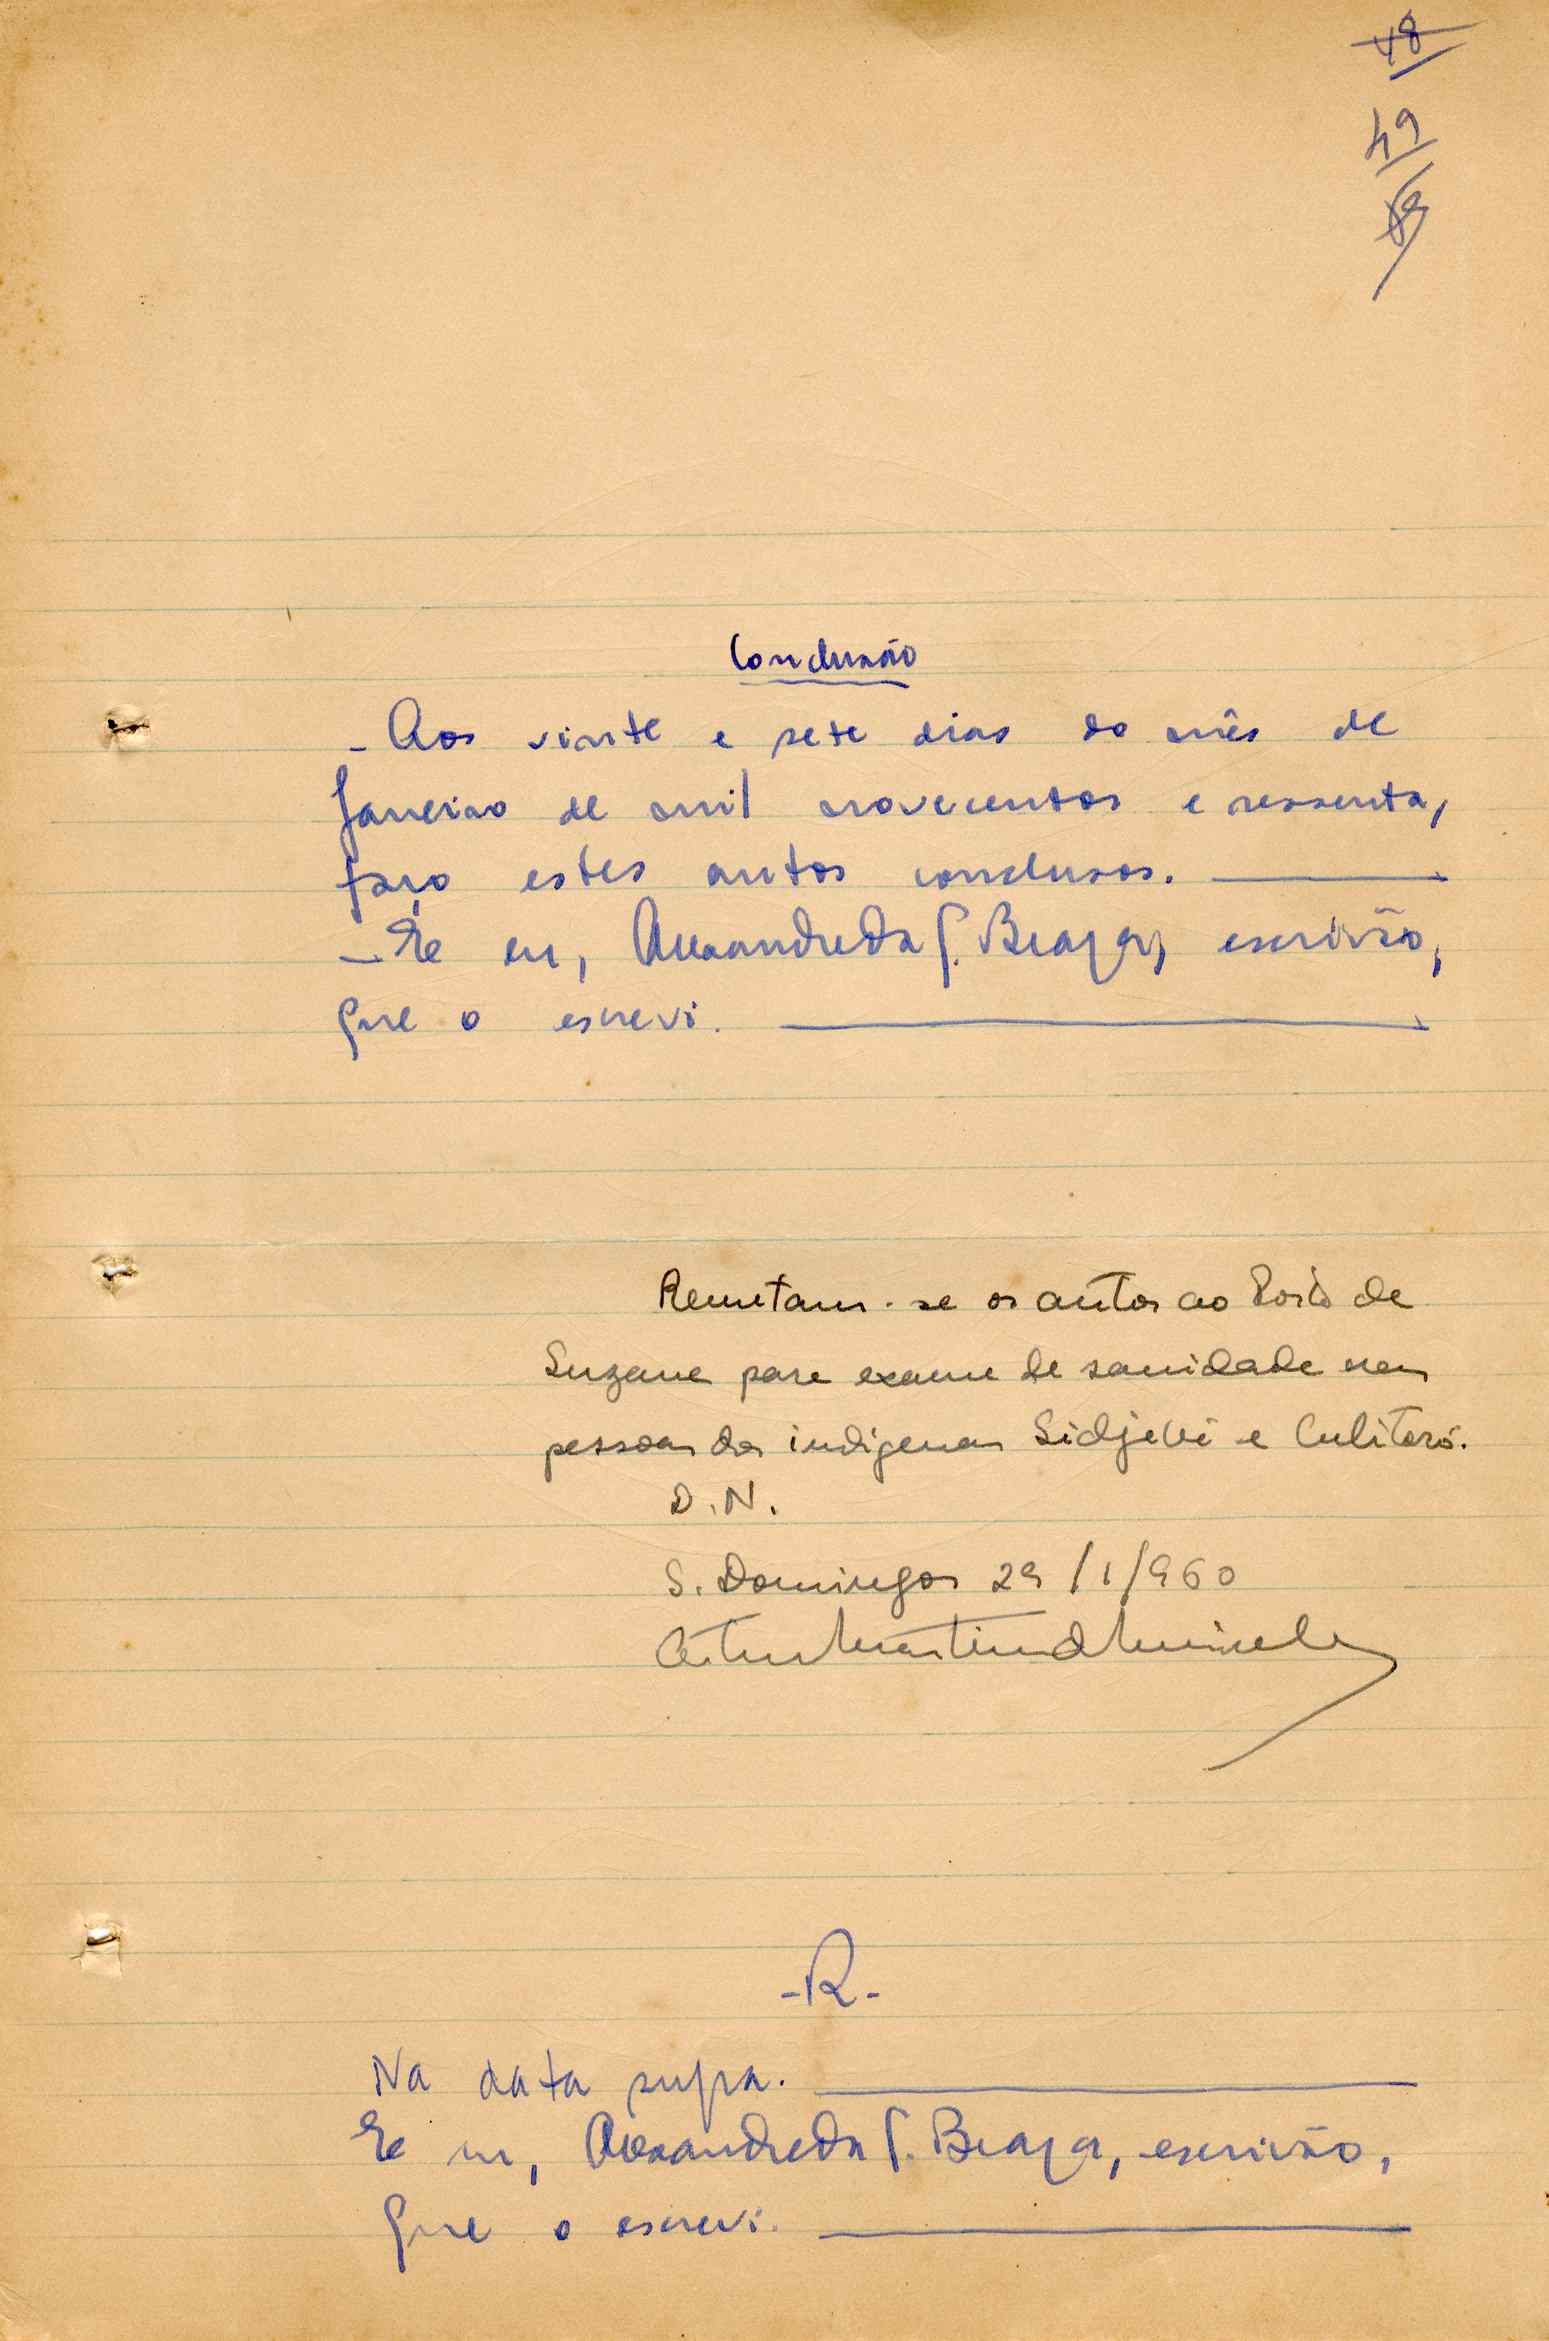 48
49
Conclusão
- Aos vinte e sete dias do mês de
Janeiro de mil novecentos e sessenta,
faço estes autos conclusos.
- E eu, Alexandre da S. Braga, escrivão,
que o escrevi.
Remetam-se os autos ao Posto de
Suzana para exame de sanidade nas
pessoas dos indígenas Sidjebi e Culitoró.
D. N.
S. Domingos 29/1/960
Artur Martins de Meireles
-R-
Na data supra.
E eu, Alexandre da S. Braga, escrivão,
que o escrevi.